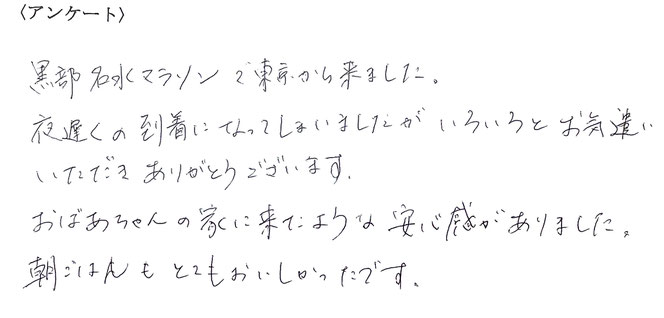 〈アンケート〉
黒部名水マラソンで東京から来ました。
夜遅くの到着になってしまいましたがいろいろとお気遣い
いただきありがとうございます。
おばあちゃんの家に来たような安心感がありました。
朝ごはんもとてもおいしかったです。